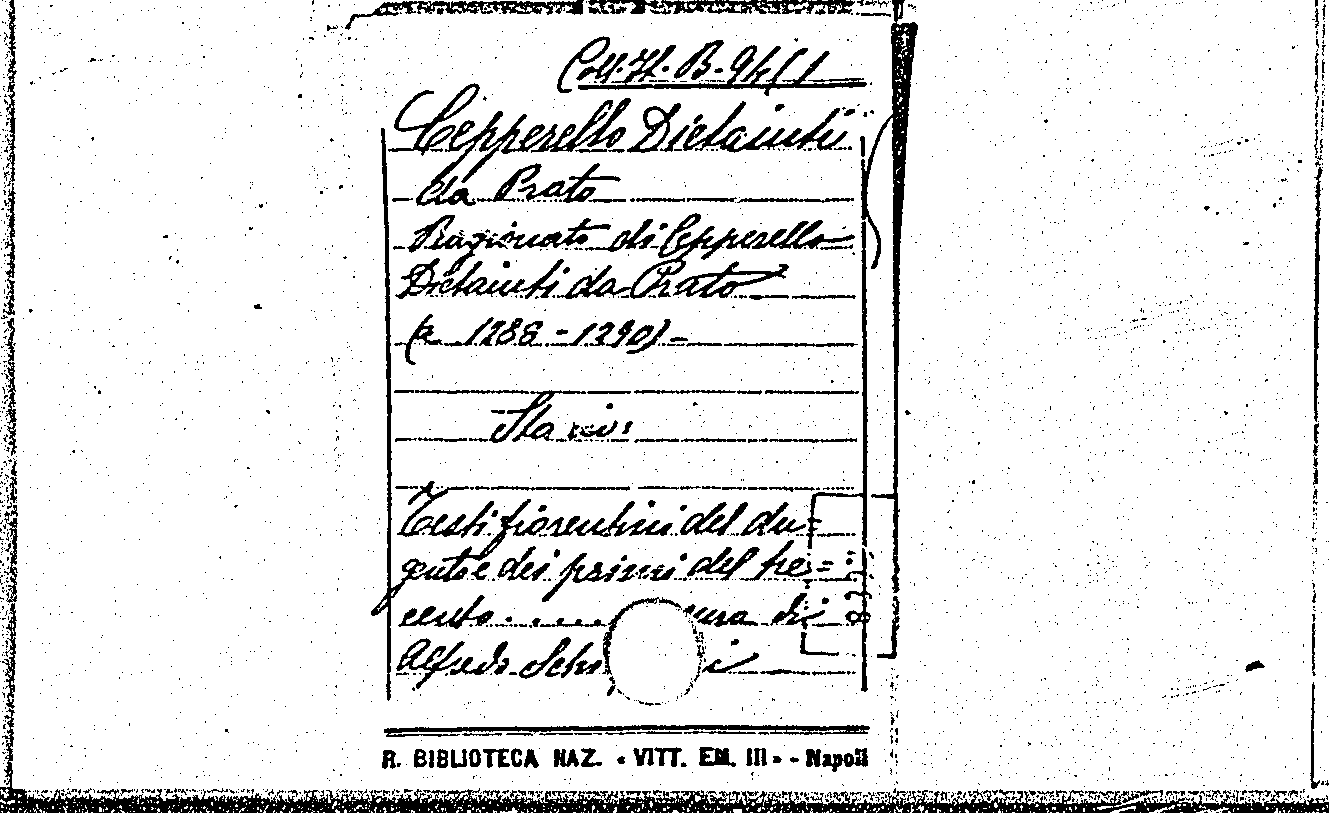 Coll. It. B. 94 (1
Cepperello Dietaiuti
da Prato
Ragionato di Cepperello
Dietaiuti da Prato
1288 - 1290) -
Sta in:
Testi fiorentini del du=
gento e dei primi del tre=
cento . . . . . cura di
Alfredo Sch i
R. BIBLIOTECA NAZ. « VITT. EM. III » - Napoli